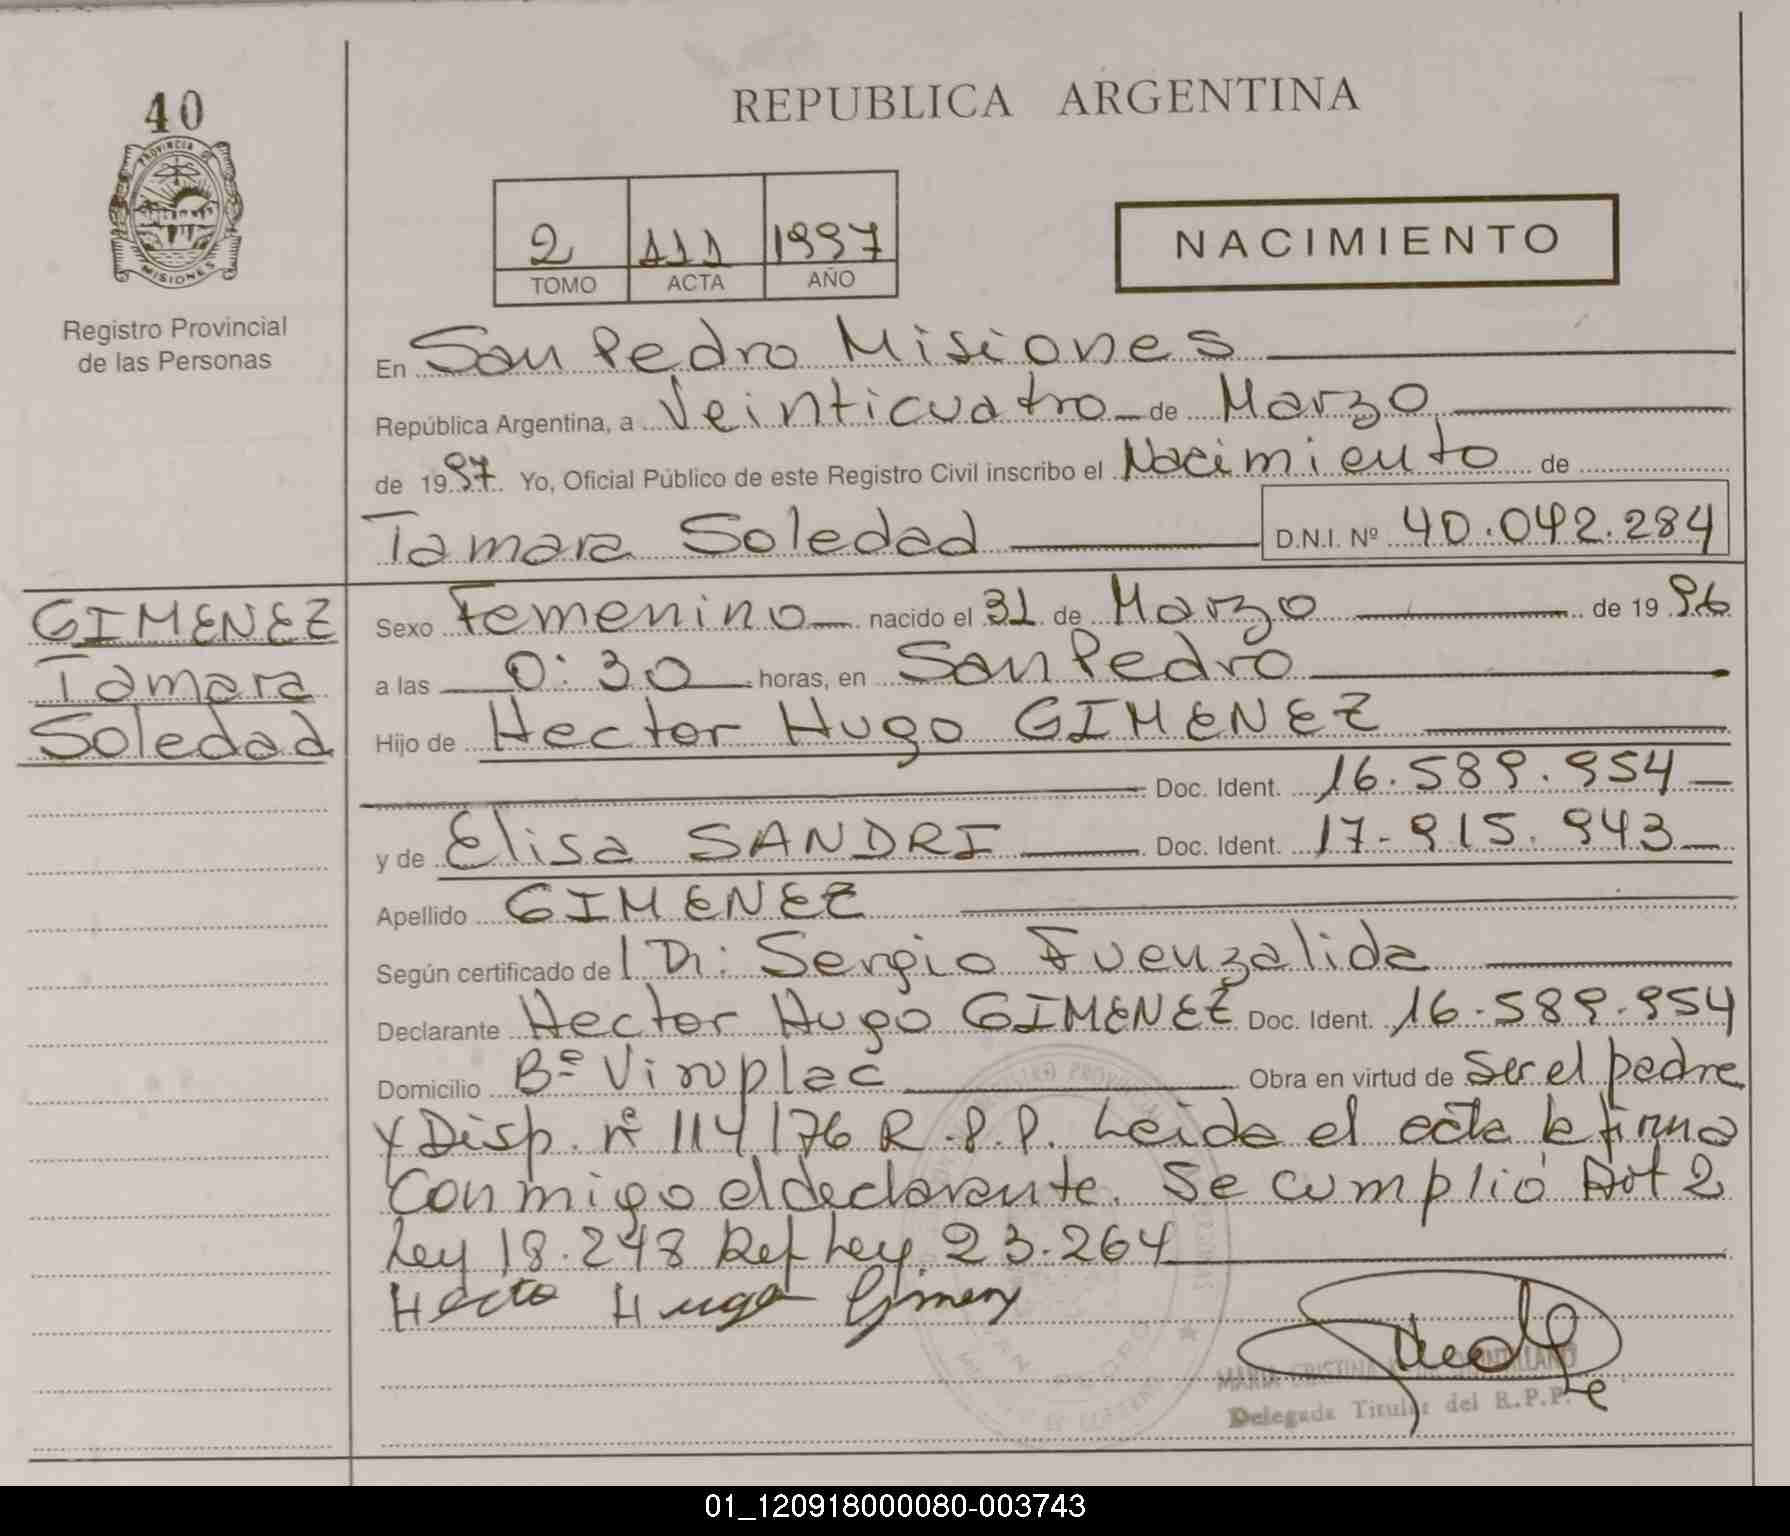 40
PROVINCIA DE
MISIONES
Registro Provincial
de las Personas
REPUBLICA ARGENTINA
2 111 1997
TOMO ACTA AÑO
NACIMIENTO
En San Pedro Misiones
República Argentina, a Veinticuatro de Marzo
de 1997 Yo, Oficial Público de este Registro Civil inscribo el Nacimiento de
Tamara Soledad D.N.I. Nº 40.042.284
GIMENEZ
Tamara
Soledad
Sexo Femenino nacido el 31 de Marzo de 1996
a las 0:30 horas, en San Pedro
Hijo de Hector Hugo GIMENEZ
Doc. Ident. 16.589.954
y de Elisa SANDRI Doc. Ident. 17.915.943
Apellido GIMENEZ
Según certificado de Dr: Sergio Fuenzalida
Declarante Hector Hugo GIMENEZ Doc. Ident. 16.589.954
Domicilio Bº Viroplac Obra en virtud de Ser el padre
y Disp. nº 114/76 R.P.P. Leida el acta la firma
Conmigo el declarante. Se cumplió Art 2
Ley 18.248 Ref Ley 23.264
Hecto Hugo Gimenez
MARIA CRISTINA SANTILLANO
Delegada Titular del R.P.P.
01_120918000080-003743